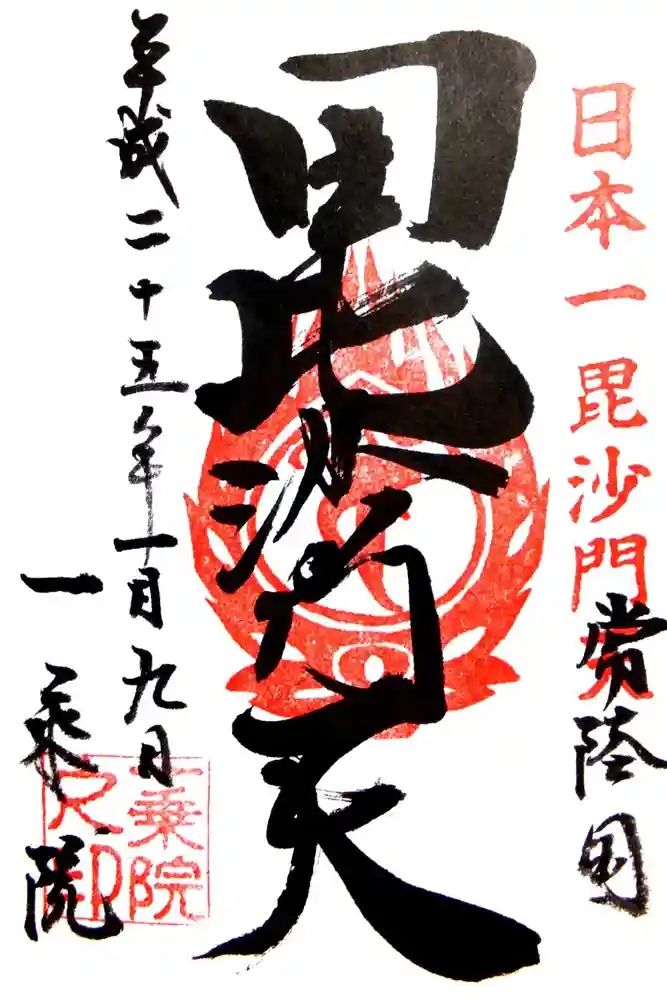 日本一毘沙門天
常陸国
毘沙門天
平成二十五年一月九日
一乗院
一乗院
之印